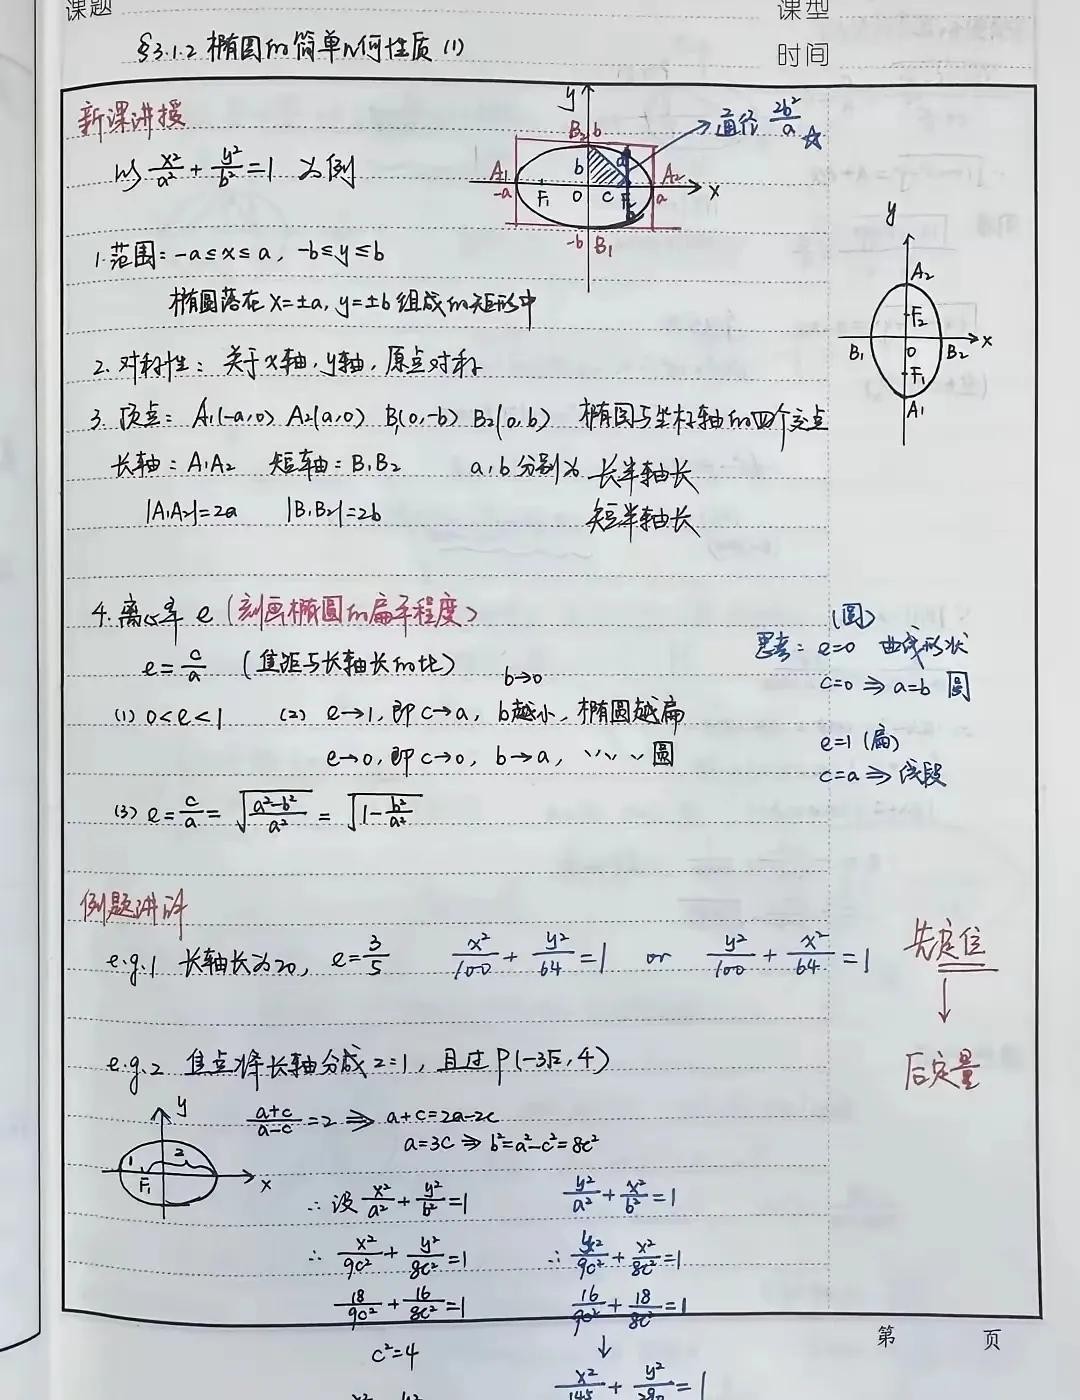 课题
课型
§3.1.2 椭圆的简单几何性质 (1)
时间
新课讲授
以 x²/a² + y²/b² = 1 为例
y
B₂ b
A₁ -a F₁ O c F₂ A₂ a x
b a
-b B₁
通径 2b²/a ☆
1. 范围: -a≤x≤a, -b≤y≤b
椭圆落在 x=±a, y=±b 组成的矩形中
2. 对称性: 关于x轴, y轴, 原点对称
3. 顶点: A₁(-a,0) A₂(a,0) B₁(0,-b) B₂(0,b) 椭圆与坐标轴的四个交点
长轴: A₁A₂ 短轴: B₁B₂ a,b分别为 长半轴长
|A₁A₂|=2a |B₁B₂|=2b 短半轴长
y
A₂
F₂
B₁ O B₂ x
F₁
A₁
4. 离心率 e (刻画椭圆的扁平程度)
e = c/a (焦距与长轴长的比)
b→0
(1) 0<e<1 (2) e→1, 即 c→a, b越小, 椭圆越扁
e→0, 即 c→0, b→a, 〃 〃 圆
(3) e = c/a = √((a²-b²)/a²) = √(1-b²/a²)
(圆)
思考: e=0 曲线形状
c=0 ⇒ a=b 圆
e=1 (扁)
c=a ⇒ 线段
例题讲评
e.g.1 长轴长为20, e=3/5 x²/100 + y²/64 = 1 or y²/100 + x²/64 = 1
先定位
↓
后定量
e.g.2 焦点将长轴分成2:1, 且过P(-3√2, 4)
y
1 2
F₁ x
(a+c)/(a-c) = 2 ⇒ a+c=2a-2c
a=3c ⇒ b²=a²-c²=8c²
∴ 设 x²/a² + y²/b² = 1 y²/a² + x²/b² = 1
∴ x²/9c² + y²/8c² = 1 ∴ y²/9c² + x²/8c² = 1
18/9c² + 16/8c² = 1 16/9c² + 18/8c² = 1
c²=4 ↓
x²/145 + y²/290 = 1
第 页